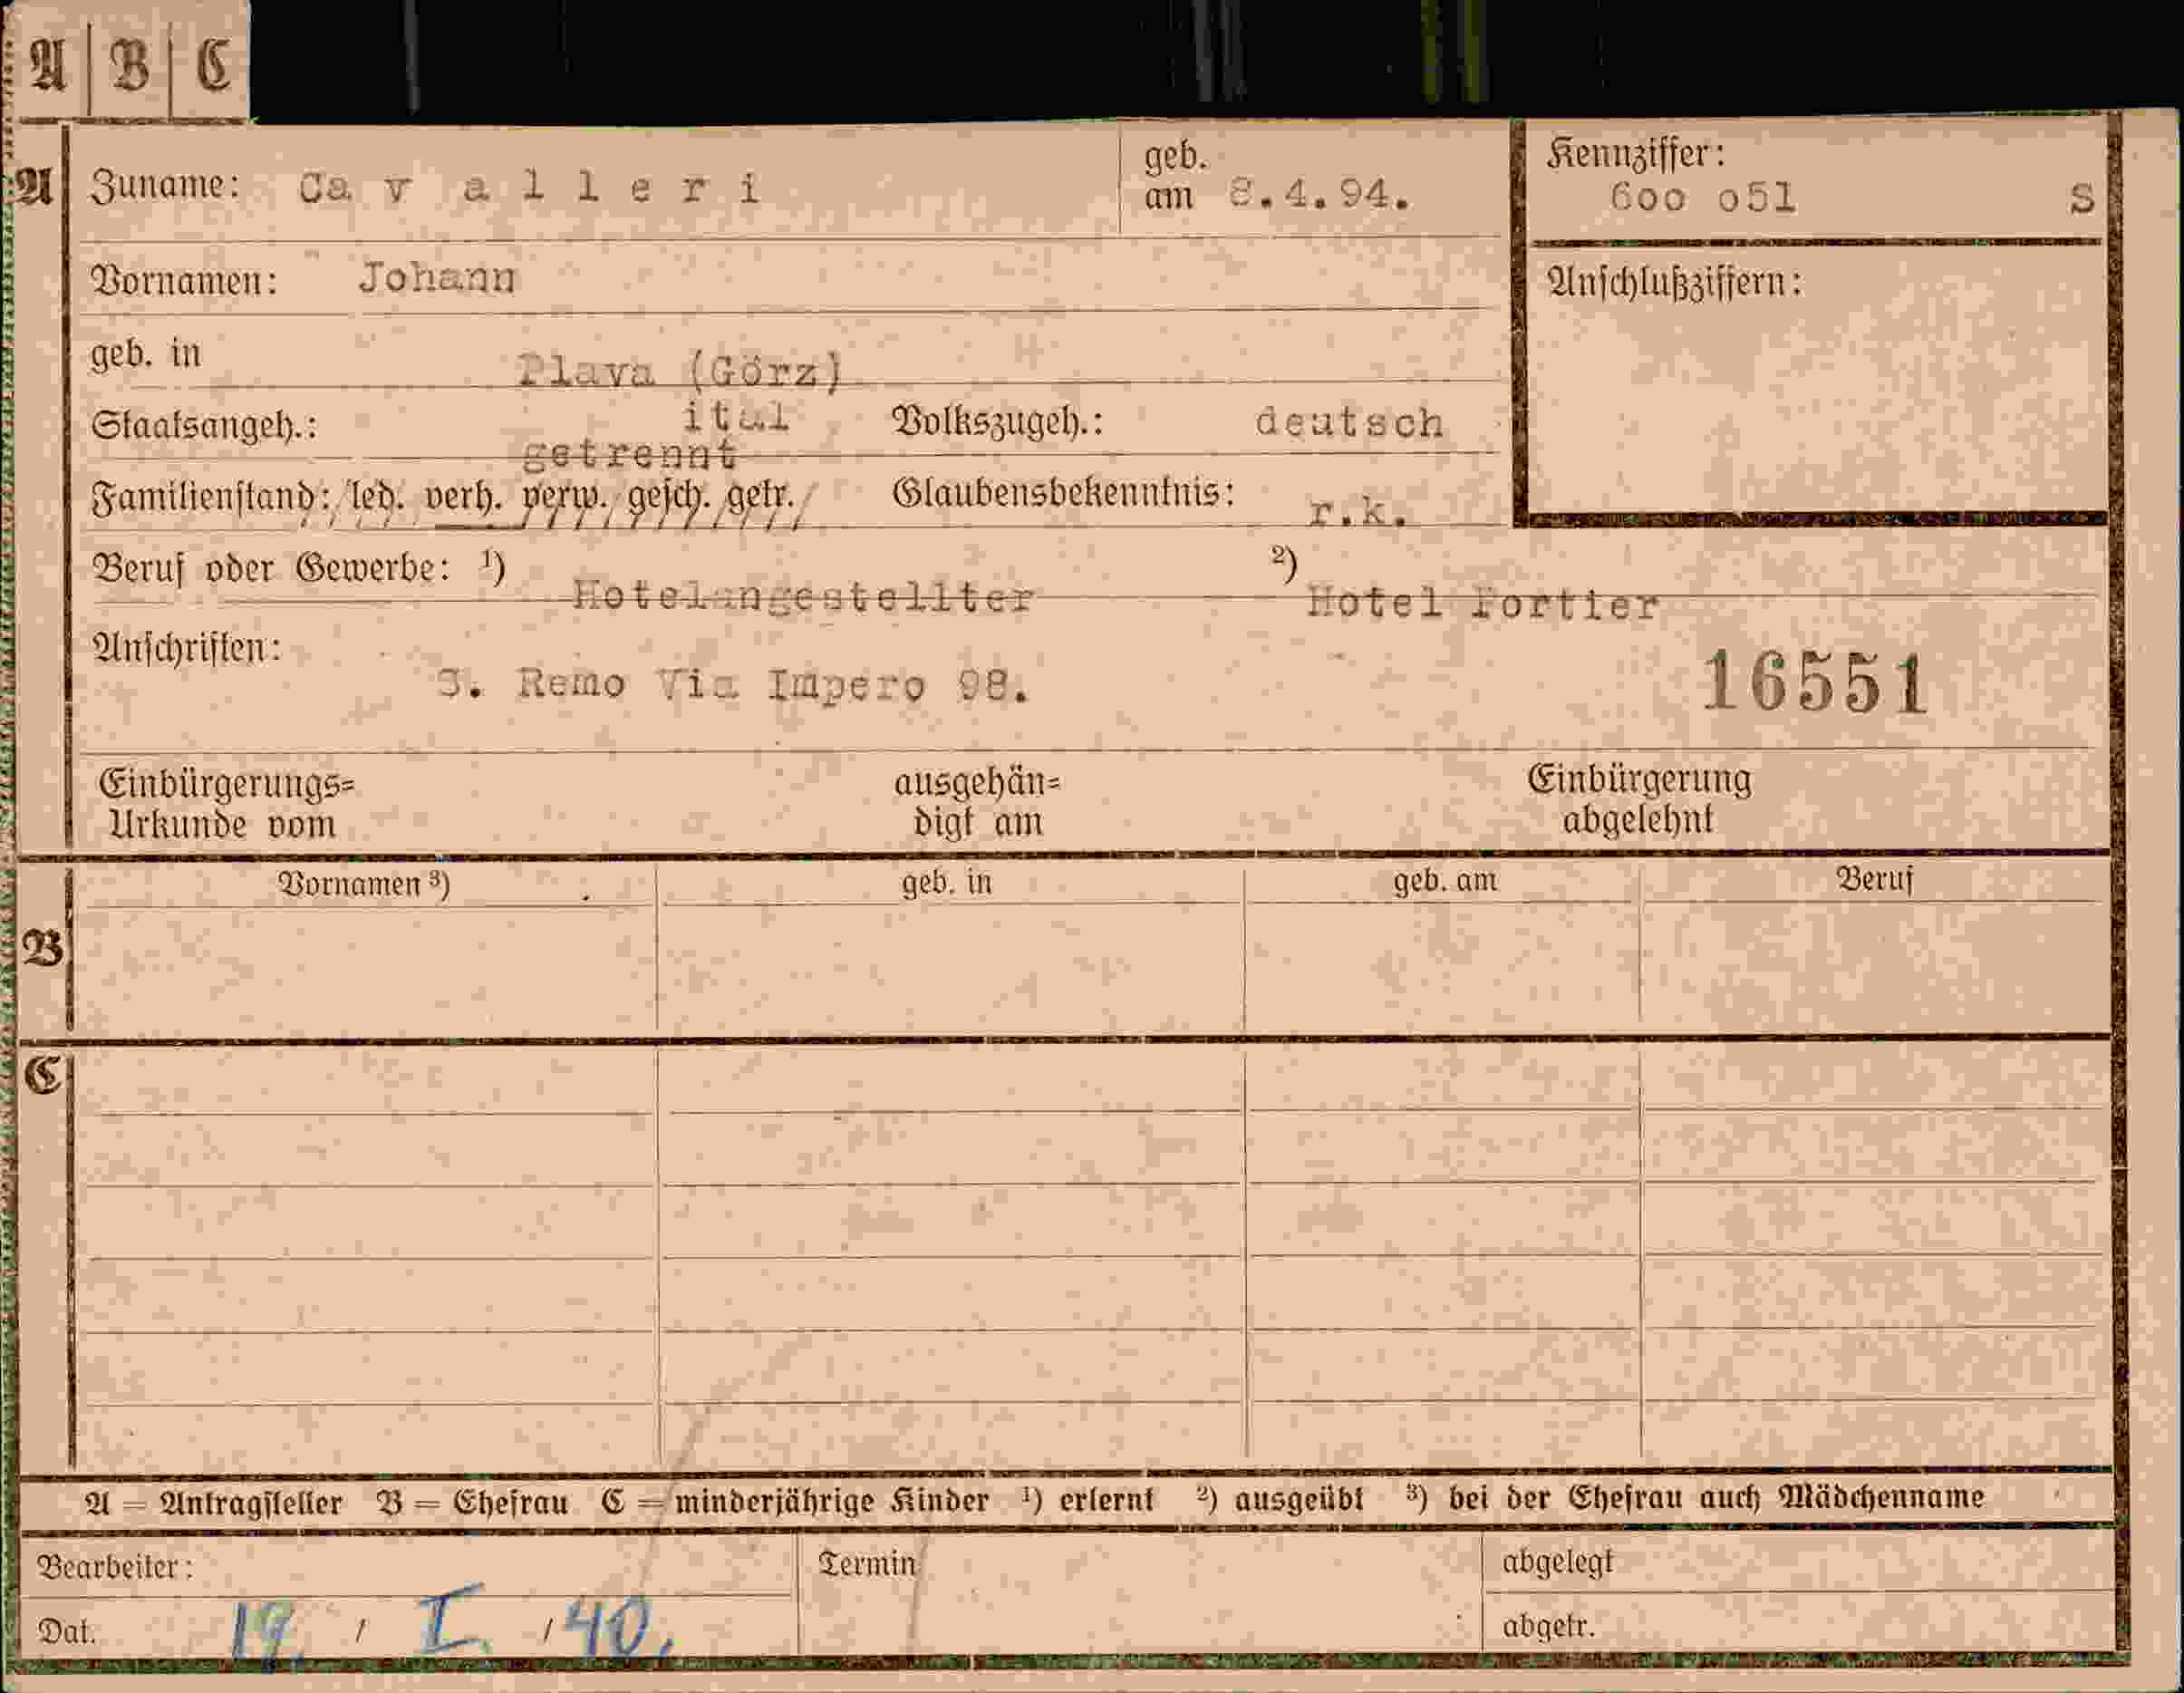 A | B | C
A Zuname: Ca v a l l e r i geb. am 8.4.94. Kennziffer: 600 o51 S
Vornamen: Johann Anschlußziffern:
geb. in Plava (Görz)
Staatsangeh.: ital Volkszugeh.: deutsch
getrennt
Familienstand: led. verh. verw. gesch. getr. Glaubensbekenntnis: r.k.
Beruf oder Gewerbe: 1) Hotelangestellter 2) Hotel Portier
Anschriften: S. Remo Via Impero 98. 16551
Einbürgerungs= ausgehän= Einbürgerung
Urkunde vom digt am abgelehnt
Vornamen 3) geb. in geb. am Beruf
B
C
A = Antragsteller B = Ehefrau C = minderjährige Kinder 1) erlernt 2) ausgeübt 3) bei der Ehefrau auch Mädchenname
Bearbeiter: Termin abgelegt
Dat. / I. / 40. abgetr.